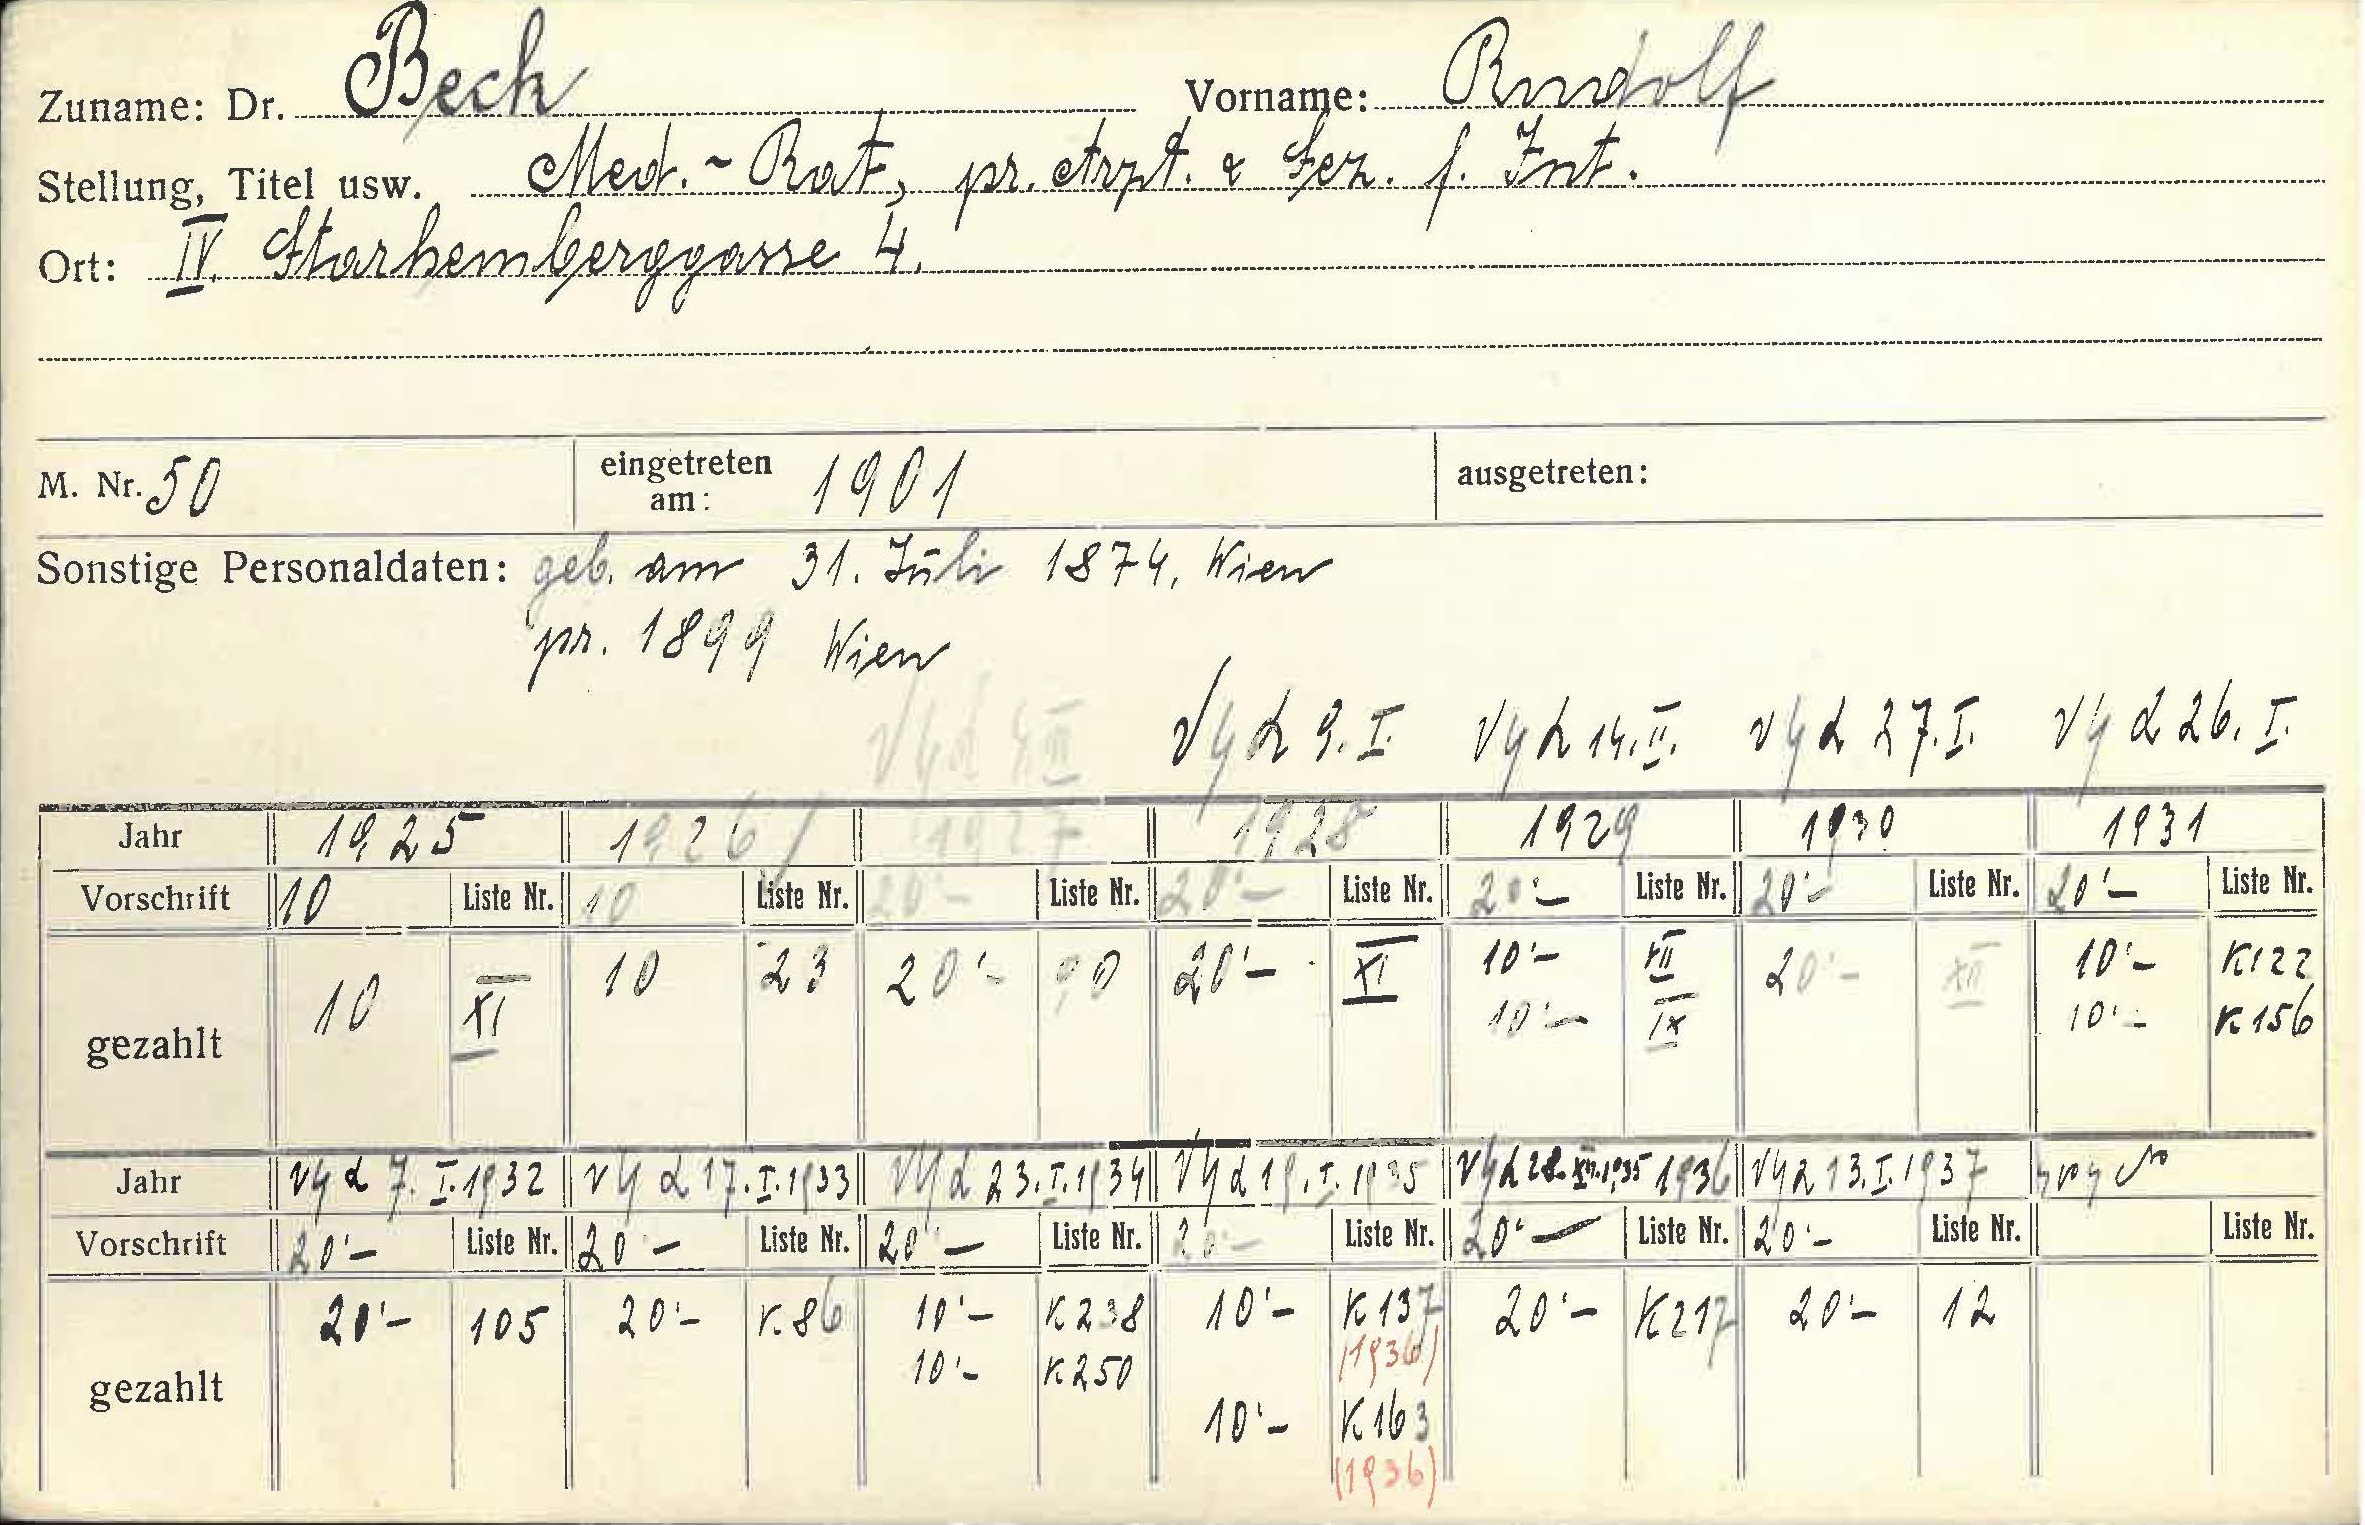 Zuname: Dr. Beck Vorname: Rudolf
Stellung, Titel usw. Med.-Rat, pr. Arzt. & Fez. f. Int.
Ort: IV. Starhemberggasse 4.
M. Nr. 50 eingetreten am: 1901 ausgetreten:
Sonstige Personaldaten: geb. am 31. Juli 1874, Wien
pr. 1899 Wien
9. I. 14. II. 27. I. 26. I.
Jahr 1925 1926 1927 1928 1929 1930 1931
Vorschrift 10 Liste Nr. 10 Liste Nr. 20'- Liste Nr. 20'- Liste Nr. 20'- Liste Nr. 20'- Liste Nr. 20'- Liste Nr.
gezahlt 10 XI 10 23 20'- 90 20'- XI 10'- VII 20'- XII 10'- K122
10'- IX 10'- K156
Jahr 7. I. 1932 17. I. 1933 23. I. 1934 19. I. 1935 28. XII. 1935 1936 13. I. 1937
Vorschrift 20'- Liste Nr. 20'- Liste Nr. 20'- Liste Nr. 20'- Liste Nr. 20'- Liste Nr. 20'- Liste Nr. Liste Nr.
gezahlt 20'- 105 20'- K86 10'- K238 10'- K137 20'- K217 20'- 12
(1936)
10'- K250
10'- K163
(1936)